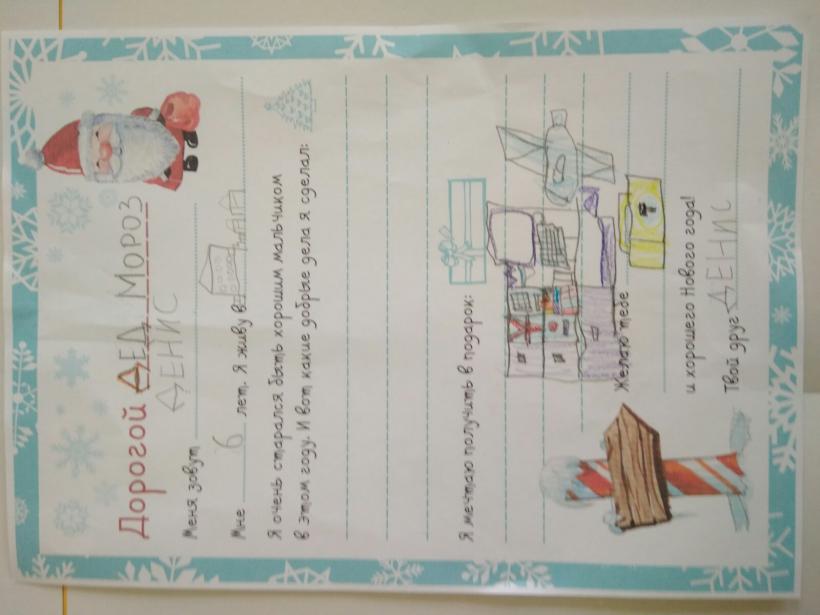 Дорогой ДЕД МОРОЗ
Меня зовут ДЕНИС
Мне 6 лет. Я живу в
Я очень старался быть хорошим мальчиком
в этом году. И вот какие добрые дела я сделал:
Я мечтаю получить в подарок:
Желаю тебе
и хорошего Нового года!
Твой друг ДЕНИС